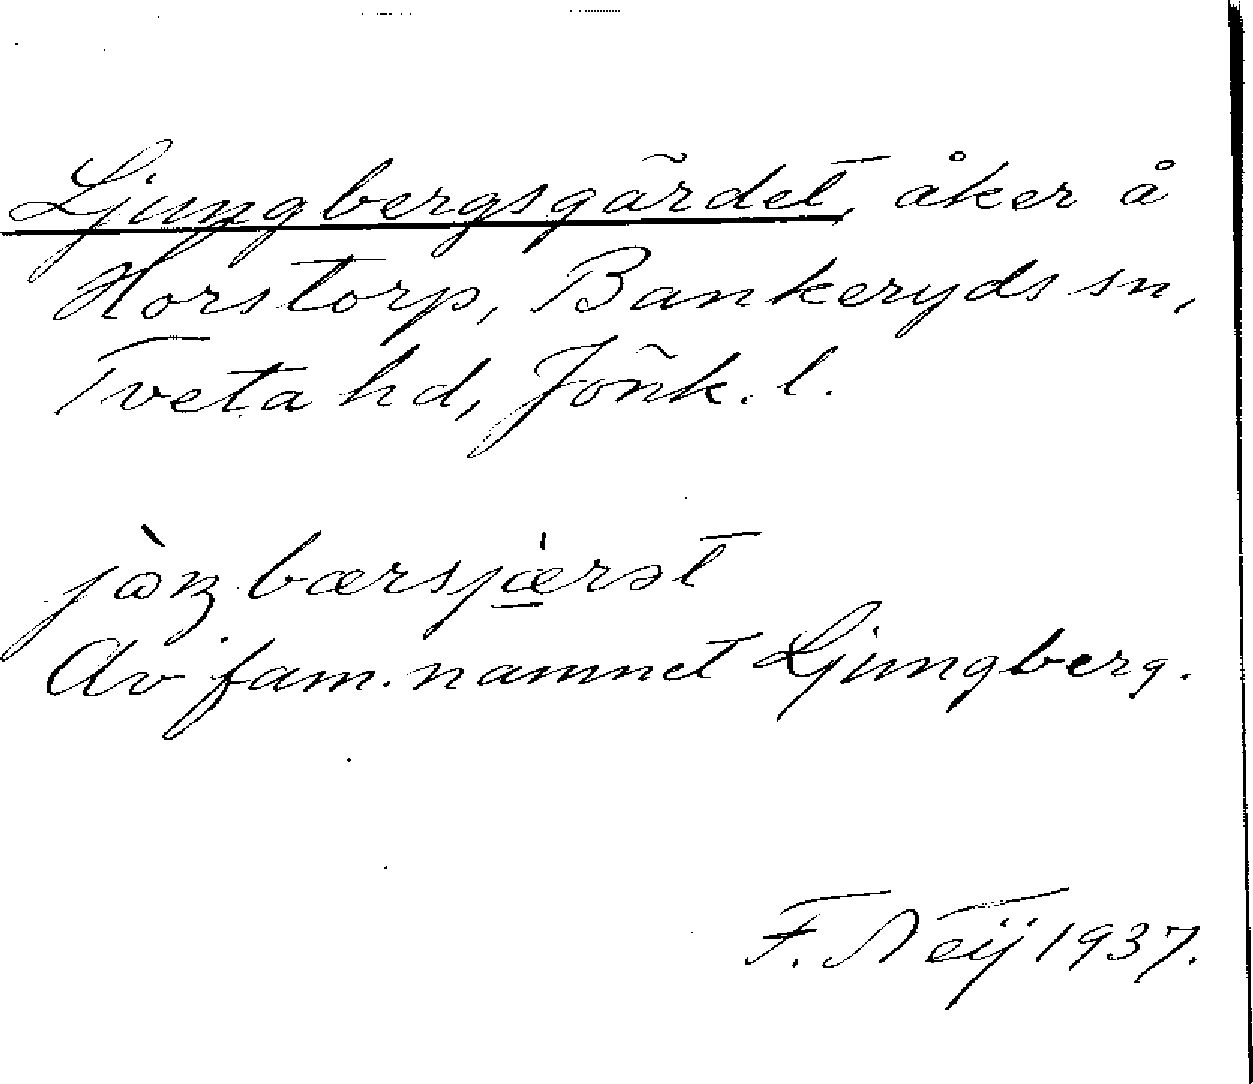 Ljungbergsgärdet, åker å
Horstorp, Bankeryds sn,
Tveta hd, Jönk. l.
Av fam. namnet Ljungberg.
F. Neij 1937.